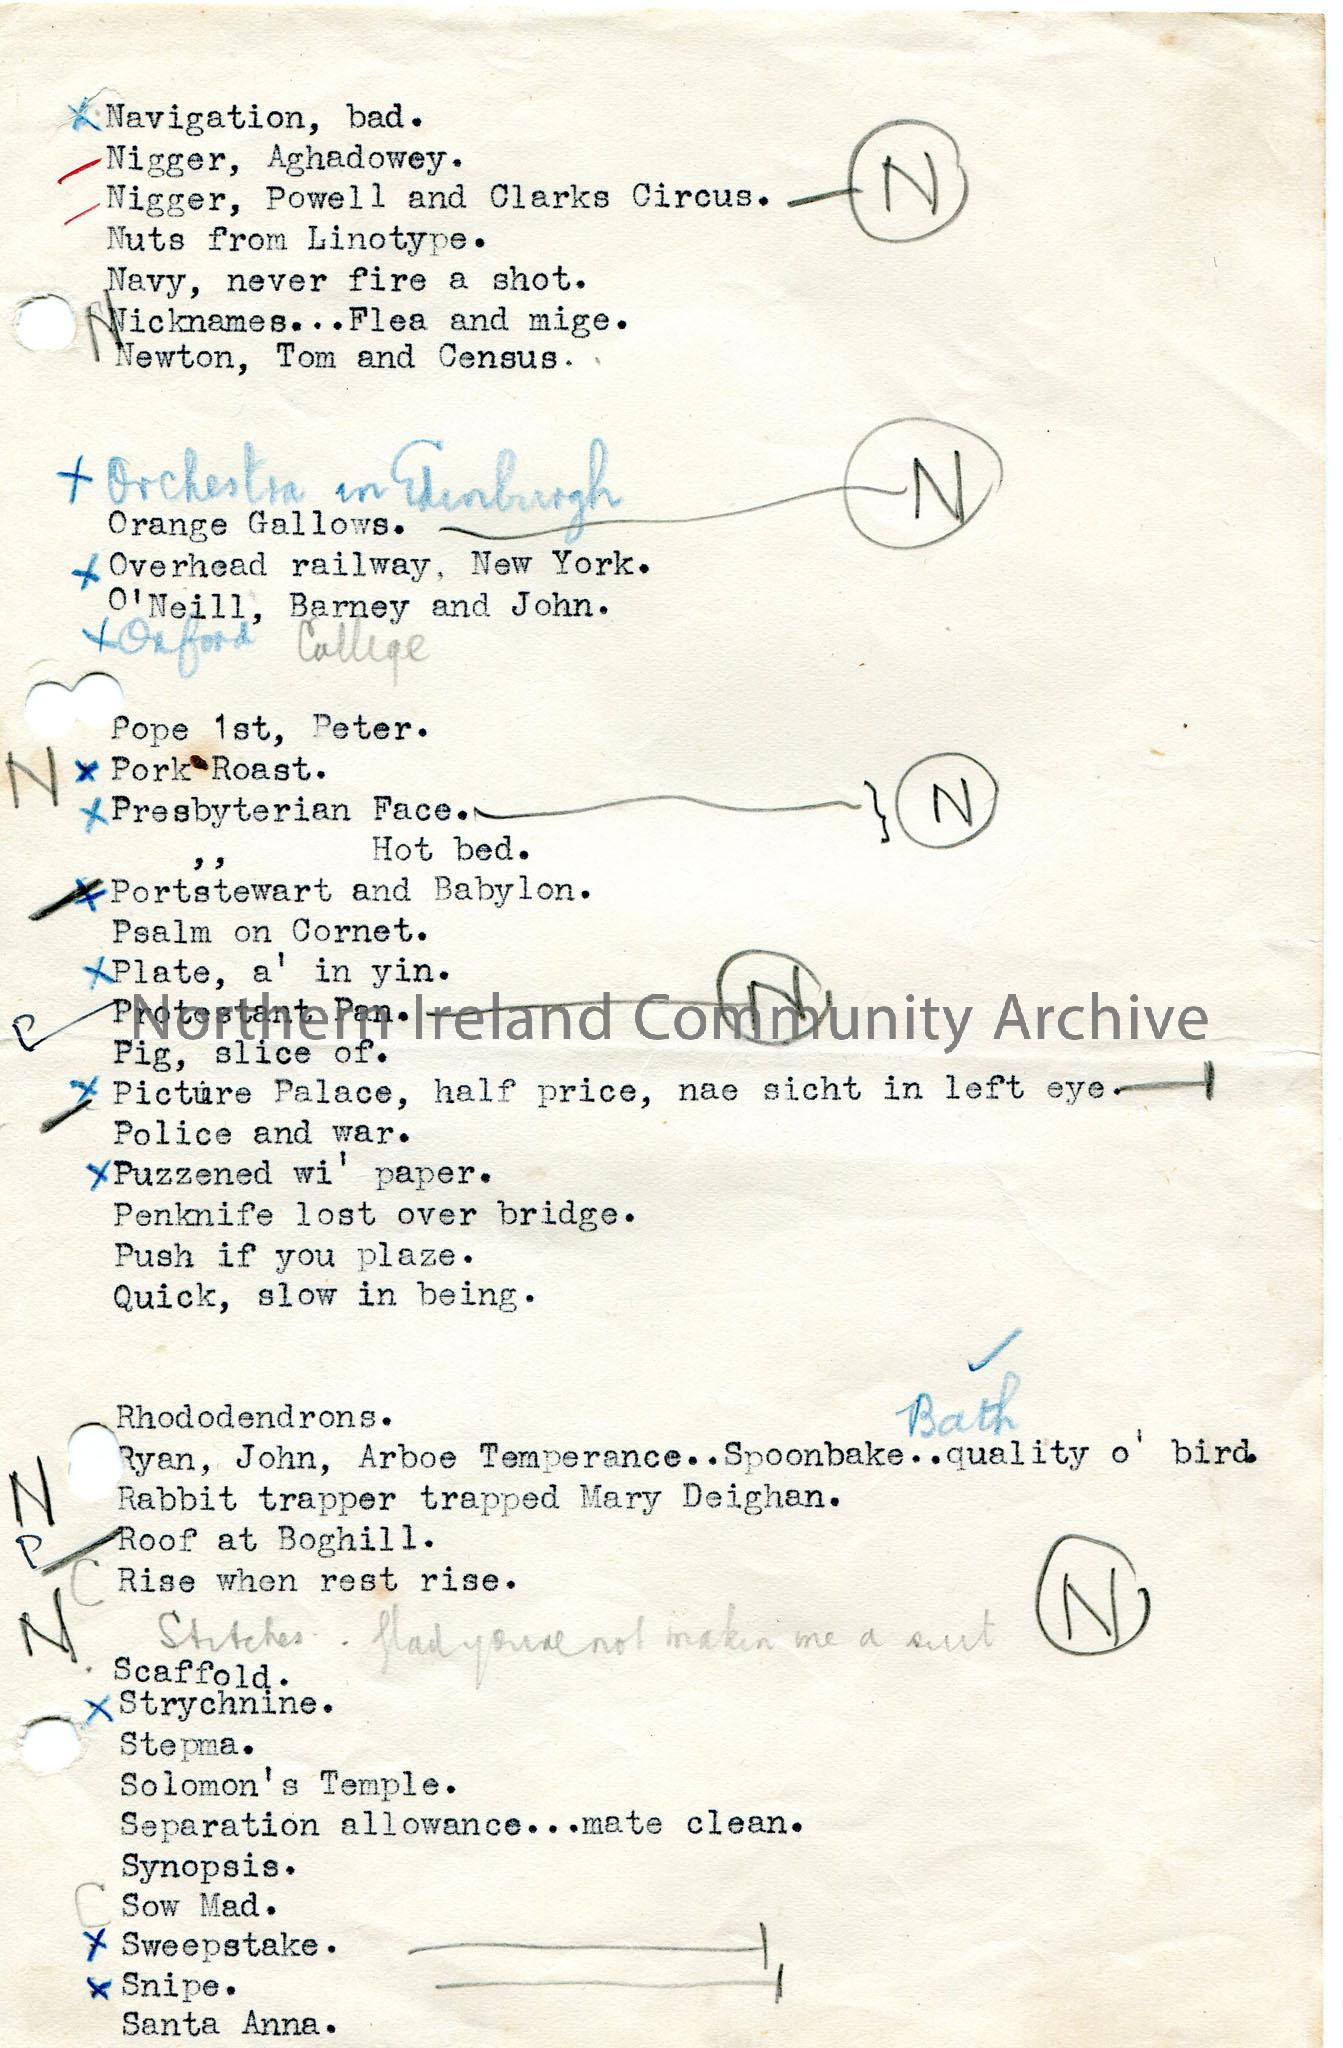 x Navigation, bad.
Nigger, Aghadowey.
Nigger, Powell and Clarks Circus. N
Nuts from Linotype.
Navy, never fire a shot.
N Nicknames...Flea and mige.
Newton, Tom and Census.
x Orchestra in Edinburgh N
Orange Gallows.
x Overhead railway, New York.
O'Neill, Barney and John.
x Oxford College
Pope 1st, Peter.
N x Pork Roast.
x Presbyterian Face. } N
,, Hot bed.
x Portstewart and Babylon.
Psalm on Cornet.
x Plate, a' in yin.
P Protestant Pan. N
Northern Ireland Community Archive
Pig, slice of.
x Picture Palace, half price, nae sicht in left eye.
Police and war.
x Puzzened wi' paper.
Penknife lost over bridge.
Push if you plaze.
Quick, slow in being.
Rhododendrons.
Bath
Ryan, John, Arboe Temperance..Spoonbake..quality o' bird.
N Rabbit trapper trapped Mary Deighan.
P Roof at Boghill.
C Rise when rest rise.
N Stitches. Glad you're not makin me a suit N
Scaffold.
x Strychnine.
Stepma.
Solomon's Temple.
Separation allowance...mate clean.
Synopsis.
C Sow Mad.
x Sweepstake.
x Snipe.
Santa Anna.